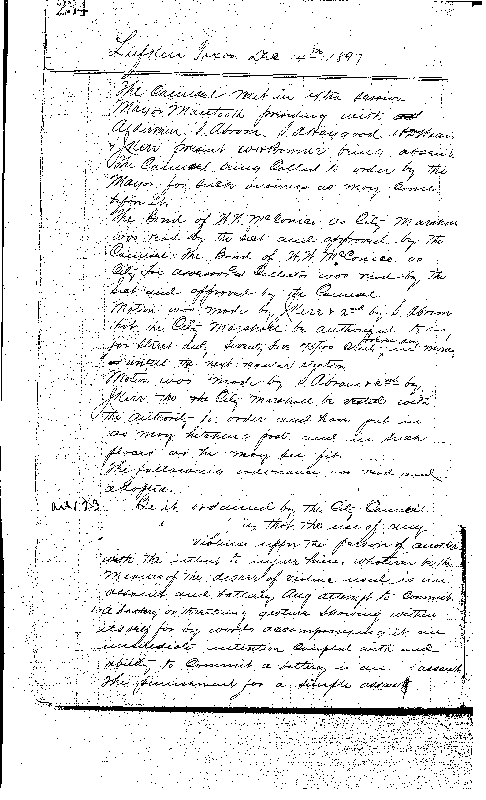 254
Lufkin Texas Dec 4th 1897
The Council met in extra session
Mayor Mantooth presiding with
Alderman S. Abram, S. A Haygood
& Kerr present being absent
The Council being Called to order by the
Mayor for such business as may Come
before it.
The Bond of W.H. McConico as City Marshal
was read by the Sect and approved by the
Council. The Bond of W.H. McConico as
City Tax assessor & Collector was read by the
Sect and approved by the Council
Motion was made by Kerr & 2nd by S. Abram
that the City Marshall be authorized to
for Street
until the next regular
Motion was made by S. Abram & 2nd by
Kerr the City Marshall be vested with
the authority to order and have put in
as many hitching post and in such
places as he may see fit
The following ordinance was read and
adopted.
Be it ordained by the City Council
that the use of any
violence upon the person of another
with the intent to injure him, whatever be the
means of the degree of violence used is an
assault and battery, Any attempt to Commit
a battery or threatning gesture showing within
itself or by words accompanying it an
immediate intention coupled with and
ability to Commit a battery is an assault
The punishment for a simple assault